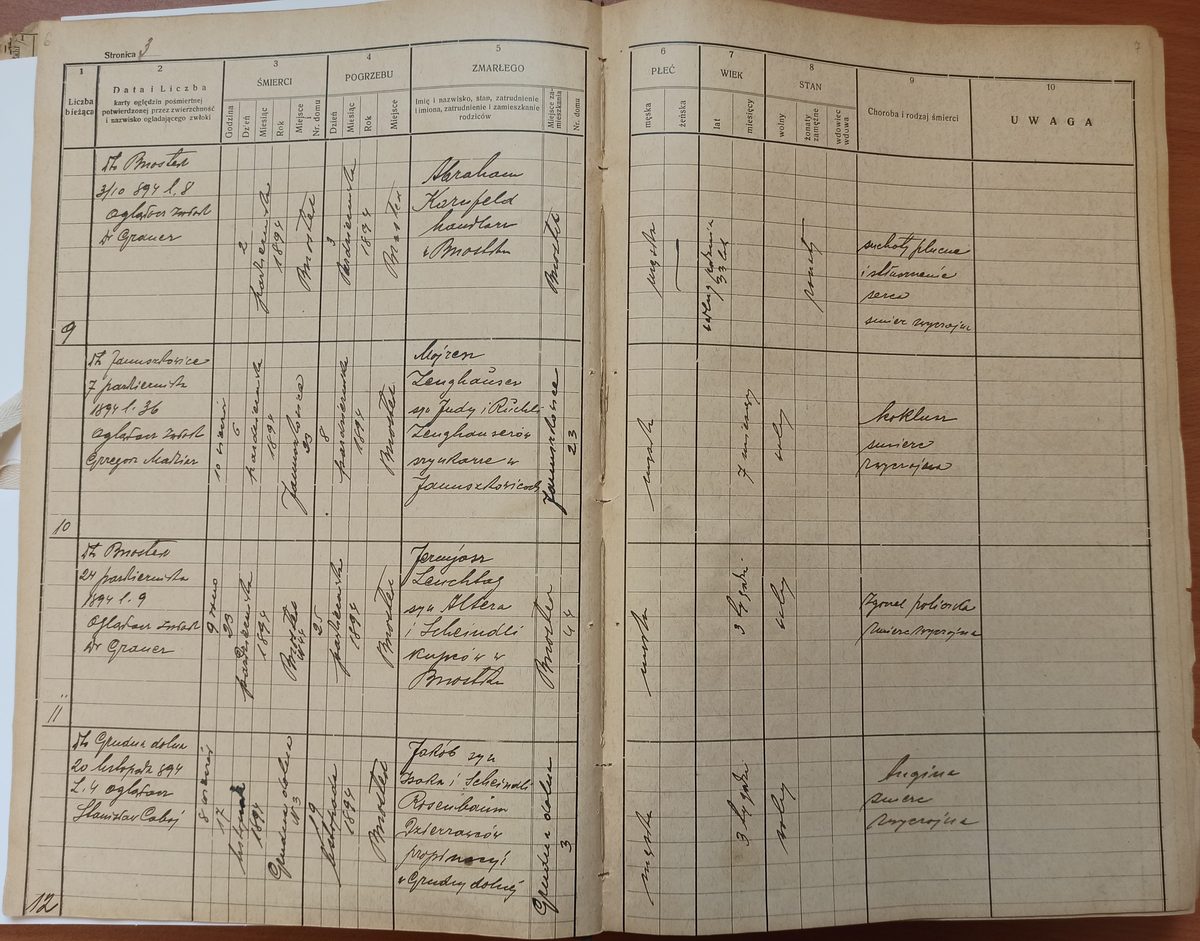 Stronica 3
7
1
Liczba
bieżąca
2
Data i Liczba
karty oględzin pośmiertnej
potwierdzonej przez zwierzchność
i nazwisko oglądającego zwłoki
3
ŚMIERCI
Godzina
Dzień
Miesiąc
Rok
Miejsce
Nr. domu
4
POGRZEBU
Dzień
Miesiąc
Rok
Miejsce
5
ZMARŁEGO
Imię i nazwisko, stan, zatrudnienie
i imiona, zatrudnienie i zamieszkanie
rodziców
Miejsce za-
mieszkania
Nr. domu
6
PŁEĆ
męska
żeńska
7
WIEK
lat
miesięcy
8
STAN
wolny
żonaty
zamężne
wdowiec
wdowa
9
Choroba i rodzaj śmierci
10
UWAGA
9
Brostek
3/10 894 l. 8
Oglądacz zwłok
Dr Grauer
2
października
1894
Brostek
3
października
1894
Brostek
Abraham
Kornfeld
handlarz
w Brostku
Brostek
męska
żonaty
suchoty płucne
i stłuszczenie
serca
śmierć zwyczajna
10
Januszkowice
7 października
1894 l. 36
Oglądacz zwłok
Grzegorz
6
października
1894
Januszkowice
33
8
października
1894
Brostek
Mojżesz
Zenghäuser
syn Judy i Ruchli
Zenghauserów
szynkarze w
Januszkowicach
Januszkowice
23
męska
7 miesięcy
wolny
koklusz
śmierć
zwyczajna
11
Brostek
24 października
1894 l. 9
Oglądacz zwłok
Dr Grauer
9 rano
23
października
1894
Brostek
44
25
października
1894
Brostek
Jermjasz
Leuchtag
syn Altera
i Scheindli
kupców w
Brostku
Brostek
44
męska
3 tygodn.
wolny
śmierć zwyczajna
12
Grudna dolna
20 listopada 894
L. 4 Oglądacz
Stanisław
17
listopada
1894
Grudna dolna
N 3
19
listopada
1894
Brostek
Jakób syn
Izaka i Scheindli
Rosenbaum
Dzierżawców
propinacyi
w Grudny dolnej
Grudna dolna
3
męska
3 tygodn.
wolny
Angina
śmierć
zwyczajna